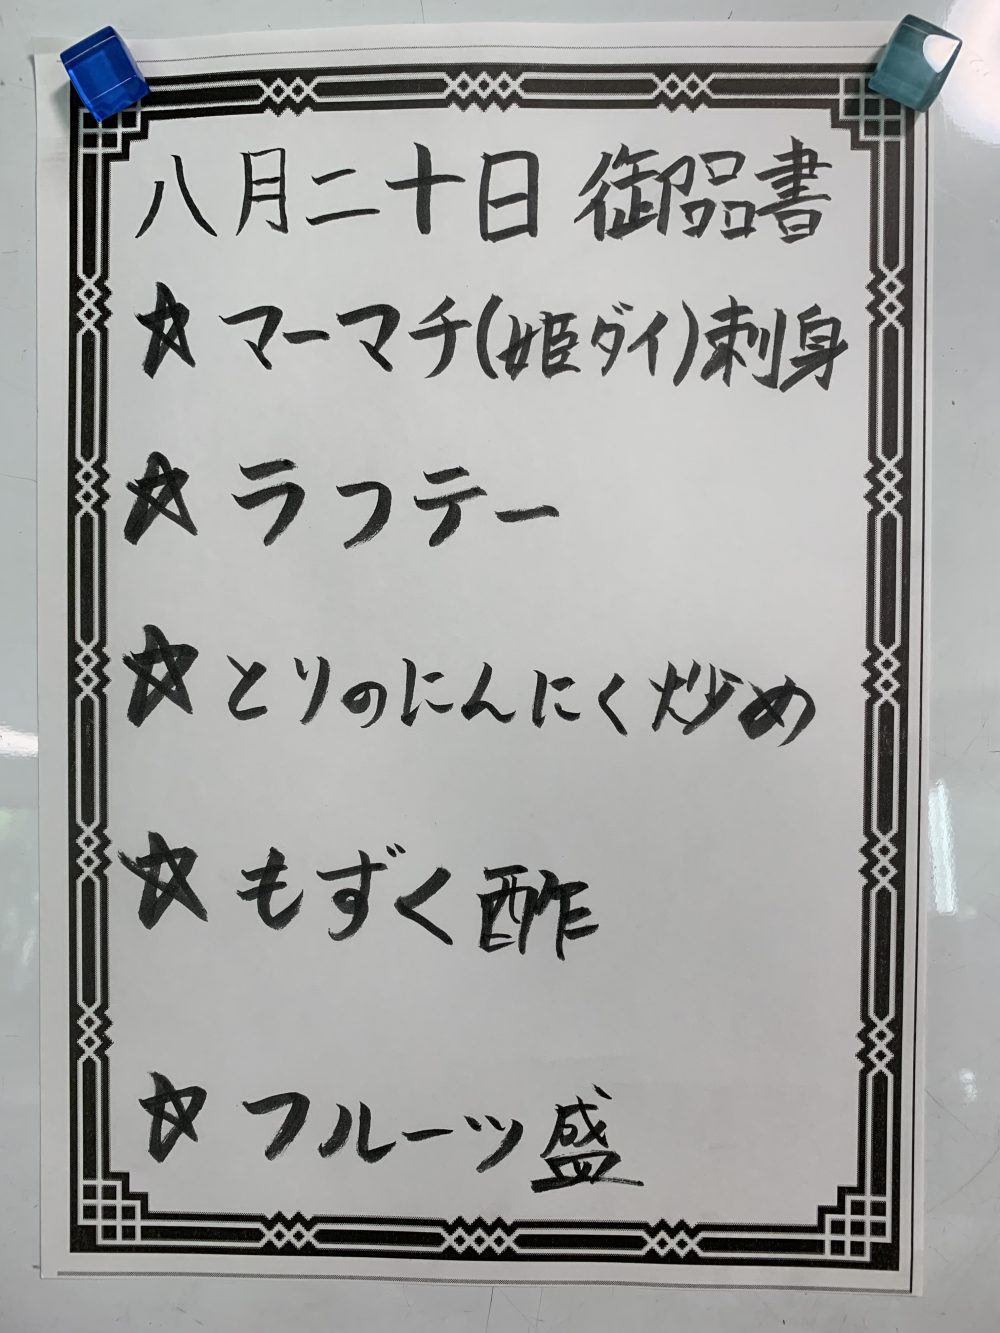 八月二十日 御品書
☆マーマチ(姫ダイ)刺身
☆ラフテー
☆とりのにんにく炒め
☆もずく酢
☆フルーツ盛